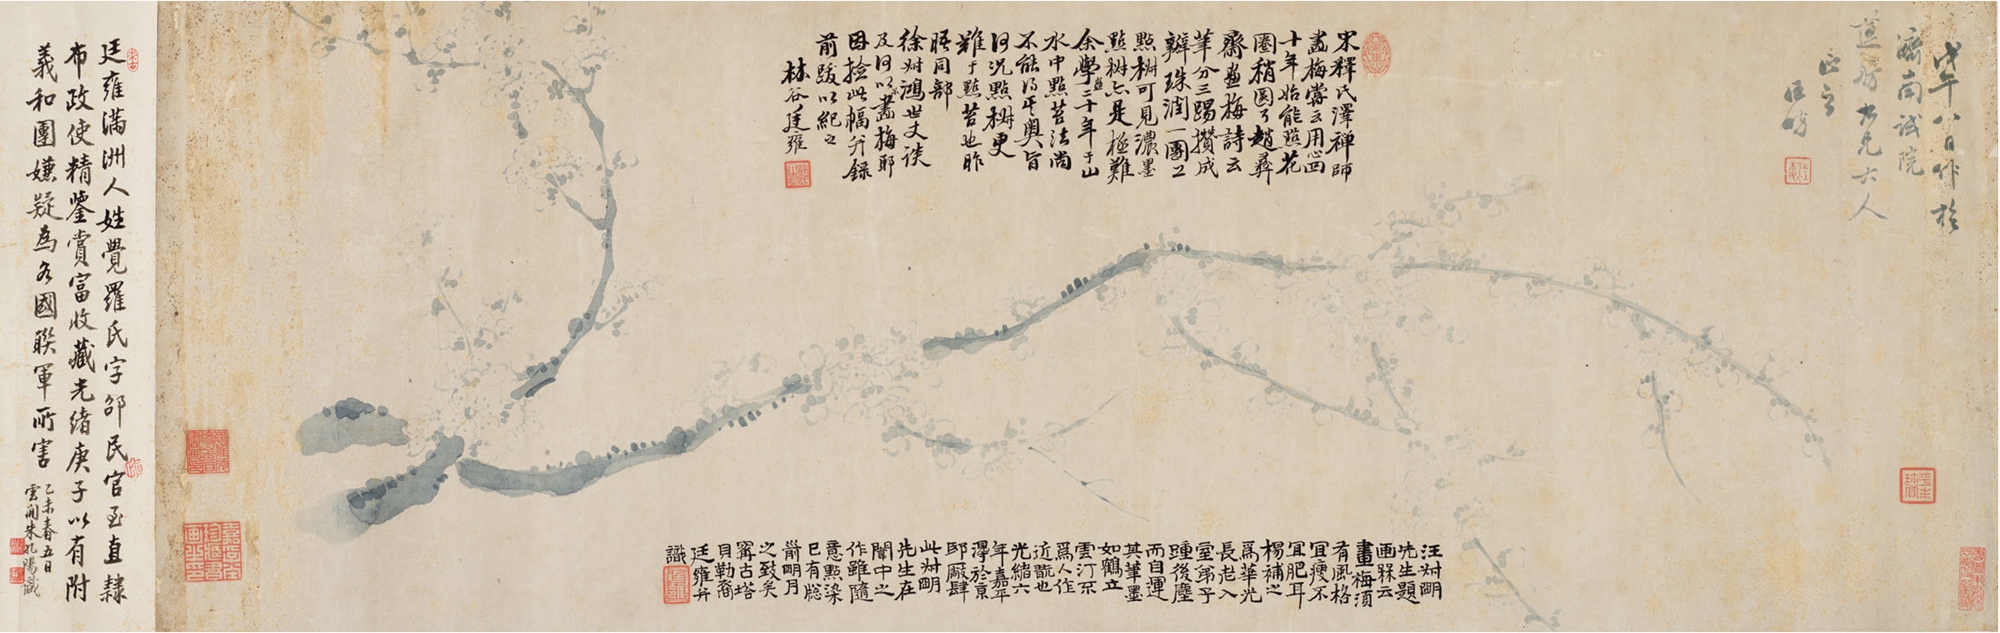 戊午八日作於
濟南試院
蓮舫大兄大人
正之
汪昉
宋釋氏澤禪師
畫梅嘗云用心四
十年始能作花
圈稍圓耳趙彝
齋畫梅詩云
筆分三踢攢成
瓣珠潤一圈工
點樹可見濃墨
點樹亦是極難
余學畫三十年于山
水中點苔法尚
不能得其奧旨
何況點樹更
難于點苔也昨
晤同部
徐叔鴻世丈談
及何以不畫梅耶
因撿此幅并錄
前跋以紀之
林谷廷雍
汪叔明
先生題
画冊云
畫梅須
有風格
宜瘦不
宜肥耳
楊補之
為華光
長老入
室弟子
踵後塵
而自運
其筆墨
如鶴立
雲汀不
為人作
近翫也
光緒六
年嘉平
得於京
邸廠肆
此叔明
先生在
闈中之
作雖隨
意點染
已有牕
前明月
之致矣
寗古塔
貝勒裔
廷雍并
識
廷雍滿洲人姓覺羅氏字邵民官至直隸
布政使精鑒賞富收藏光緒庚子以有附
義和團嫌疑為各國聯軍所害
乙未春五日
雲間朱孔陽識